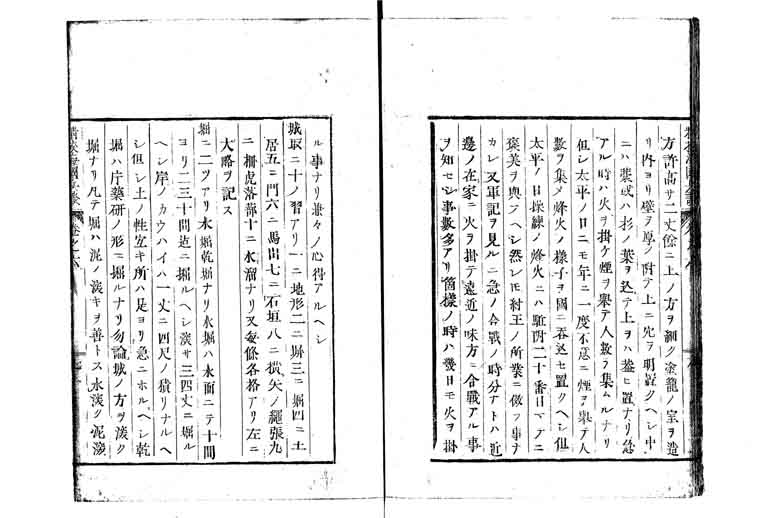 方許高サ二丈餘ニ上ノ方ヲ細ク塗籠ノ室ヲ造
リ内ヨリ壁ヲ厚ク附テ上ニ穴ヲ明置クヘシ中
ニハ葉或ハ杉ノ葉ヲ込テ上ヲハ蓋ヒ置ナリ急
アル時ハ火ヲ掛ケ煙ヲ擧テ人數ヲ集ムルナリ
但シ太平ノ日ニモ年ニ一度不�意ニ煙ヲ擧テ人
數ヲ集メ烽火ノ樣子ヲ國ニ呑込セ置クヘシ但
太平ノ日操練ノ烽火ニハ駈附二十番目マテニ
褒美ヲ與テヘシ然レモ紂王ノ所業ニ傚フ事ナ
カレ又軍記ヲ見ルニ急ノ合戰ノ時分アトハ近
邊ノ在家ニ火ヲ掛テ遠近ノ味方ニ合戰アル事
ヲ知セシ事數多アリ箇樣ノ時ハ幾日モ火ヲ掛
ル事ナリ兼々ノ心得アルヘシ
城取ニ十ノ習アリ一ニ地形二ニ塀三ニ堀四ニ土
居五ニ門六ニ馬出七ニ石垣八ニ横矢ノ繩張九
ニ柵虎落蔀十ニ水溜ナリ又每條各格アリ左ニ
大略ヲ記ス
堀ニ二ツアリ水堀乾堀ナリ水堀ハ水面ニテ十間
ヨリ二三十間迄ニ掘ルヘシ深サ三四丈ニ堀ル
ヘシ岸ノカウハイハ一丈ニ四尺ノ積リナルヘ
シ但シ土ノ性宜キ所ハ是ヨリ急ニホルヘシ乾
堀ハ片藥研ノ形ニ掘ルナリ勿論城ノ方ヲ深ク
堀ナリ凡テ堀ハ泥ノ深キヲ善トス水深ク泥深